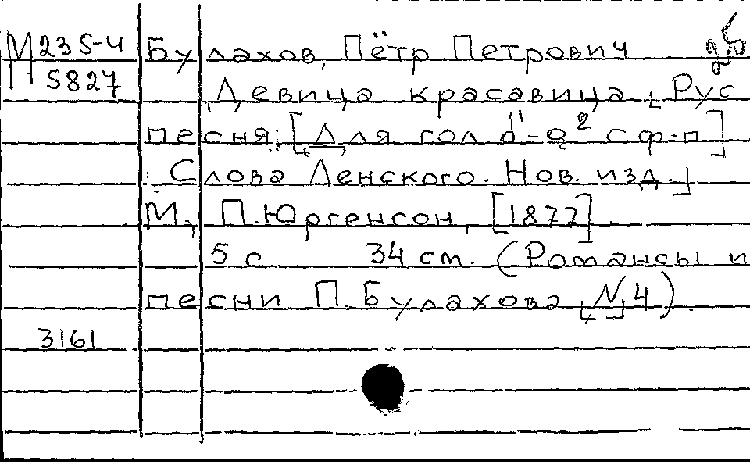 М 235-4 Булахов, Пётр Петрович
5827 Девица красавица. Рус
песня. [Для гол. d¹-a² с ф-п]
. Слова Ленского. Нов. изд.]
М., П. Юргенсон, [1877].
5 с 34 см. (Романсы и
песни П. Булахова [N] 4)
3161